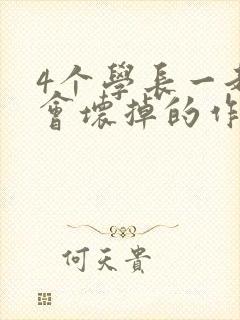 4个學長一
會壞掉的作
何天貴